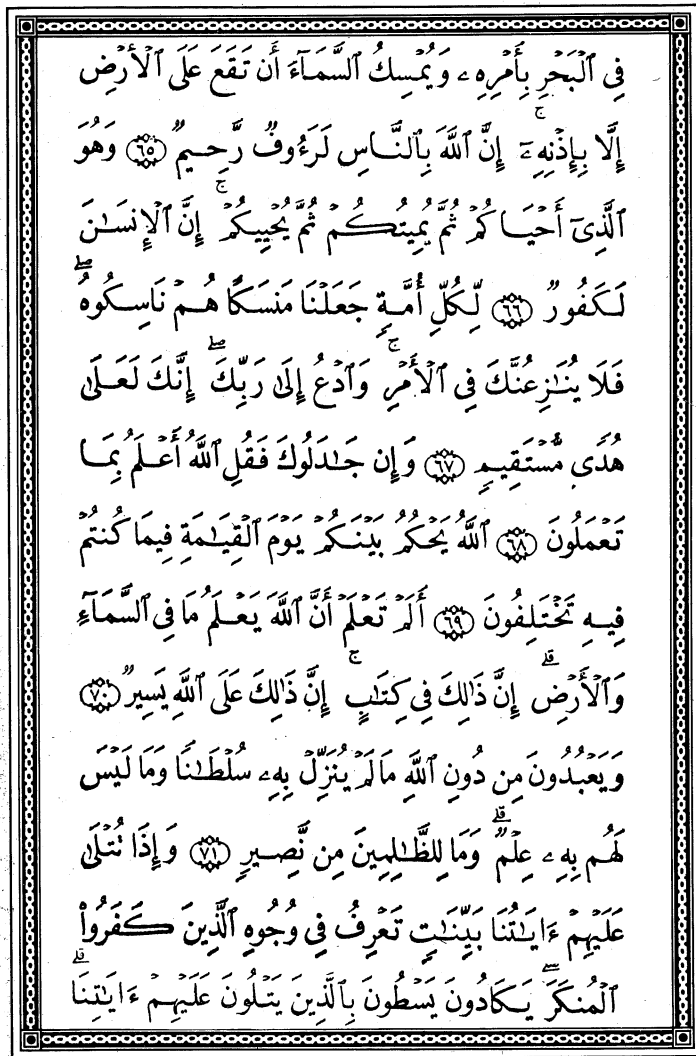 فِى ٱلْبَحْرِ بِأَمْرِهِۦ وَيُمْسِكُ ٱلسَّمَآءَ أَن تَقَعَ عَلَى ٱلْأَرْضِ
إِلَّا بِإِذْنِهِۦٓ ۚ إِنَّ ٱللَّهَ بِٱلنَّاسِ لَرَءُوفٌ رَّحِيمٌ ٦٥ وَهُوَ
ٱلَّذِىٓ أَحْيَاكُمْ ثُمَّ يُمِيتُكُمْ ثُمَّ يُحْيِيكُمْ ۚ إِنَّ ٱلْإِنسَٰنَ
لَكَفُورٌ ٦٦ لِّكُلِّ أُمَّةٍ جَعَلْنَا مَنسَكًا هُمْ نَاسِكُوهُ ۖ
فَلَا يُنَٰزِعُنَّكَ فِى ٱلْأَمْرِ ۚ وَٱدْعُ إِلَىٰ رَبِّكَ ۖ إِنَّكَ لَعَلَىٰ
هُدًى مُّسْتَقِيمٍ ٦٧ وَإِن جَٰدَلُوكَ فَقُلِ ٱللَّهُ أَعْلَمُ بِمَا
تَعْمَلُونَ ٦٨ ٱللَّهُ يَحْكُمُ بَيْنَكُمْ يَوْمَ ٱلْقِيَٰمَةِ فِيمَا كُنتُمْ
فِيهِ تَخْتَلِفُونَ ٦٩ أَلَمْ تَعْلَمْ أَنَّ ٱللَّهَ يَعْلَمُ مَا فِى ٱلسَّمَآءِ
وَٱلْأَرْضِ ۗ إِنَّ ذَٰلِكَ فِى كِتَٰبٍ ۚ إِنَّ ذَٰلِكَ عَلَى ٱللَّهِ يَسِيرٌ ٧٠
وَيَعْبُدُونَ مِن دُونِ ٱللَّهِ مَا لَمْ يُنَزِّلْ بِهِۦ سُلْطَٰنًا وَمَا لَيْسَ
لَهُم بِهِۦ عِلْمٌ ۗ وَمَا لِلظَّٰلِمِينَ مِن نَّصِيرٍ ٧١ وَإِذَا تُتْلَىٰ
عَلَيْهِمْ ءَايَٰتُنَا بَيِّنَٰتٍ تَعْرِفُ فِى وُجُوهِ ٱلَّذِينَ كَفَرُوا۟
ٱلْمُنكَرَ ۖ يَكَادُونَ يَسْطُونَ بِٱلَّذِينَ يَتْلُونَ عَلَيْهِمْ ءَايَٰتِنَا ۗ